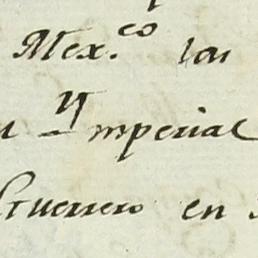 Mex.co los
y Ymperial
Guerrero en